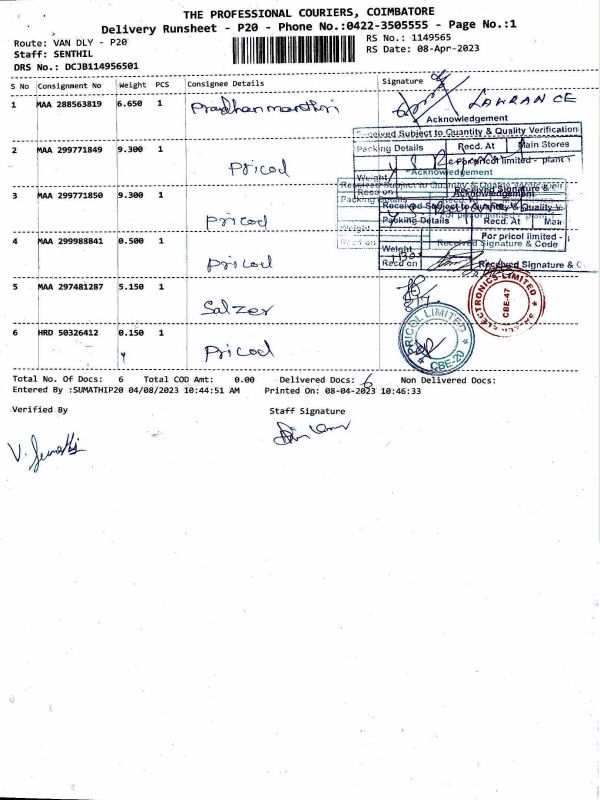 THE PROFESSIONAL COURIERS, COIMBATORE
Delivery Runsheet - P20 - Phone No.:0422-3505555 - Page No.:1
Route: VAN DLY - P20
RS No.: 1149565
Staff: SENTHIL
RS Date: 08-Apr-2023
DRS No.: DCJB114956501
S No Consignment No Weight PCS Consignee Details Signature
1 MAA 288563819 6.650 1
LAWRANCE
Acknowledgement
Received Subject to Quantity & Quality Verification
2 MAA 299771849 9.300 1 Pricol
Packing Details Recd. At Main Stores
pricol limited - plant 1
Weight
Acknowledgement
3 MAA 299771850 9.300 1 Pricol
Received Subject to Quantity & Quality V
Packing Details Recd. At Main
4 MAA 299988841 0.500 1 Pricol
For pricol limited -
Weight
Received Signature & Code
Recd on Received Signature & C
5 MAA 297481287 5.150 1 Salzer
ELECTRONICS LIMITED
CBE-47
6 HRD 50326412 0.150 1 Pricol
PRICOL LIMITED
CBE-20
Total No. Of Docs: 6 Total COD Amt: 0.00 Delivered Docs: 6 Non Delivered Docs:
Entered By :SUMATHIP20 04/08/2023 10:44:51 AM Printed On: 08-04-2023 10:46:33
Verified By Staff Signature
V. Sumathi